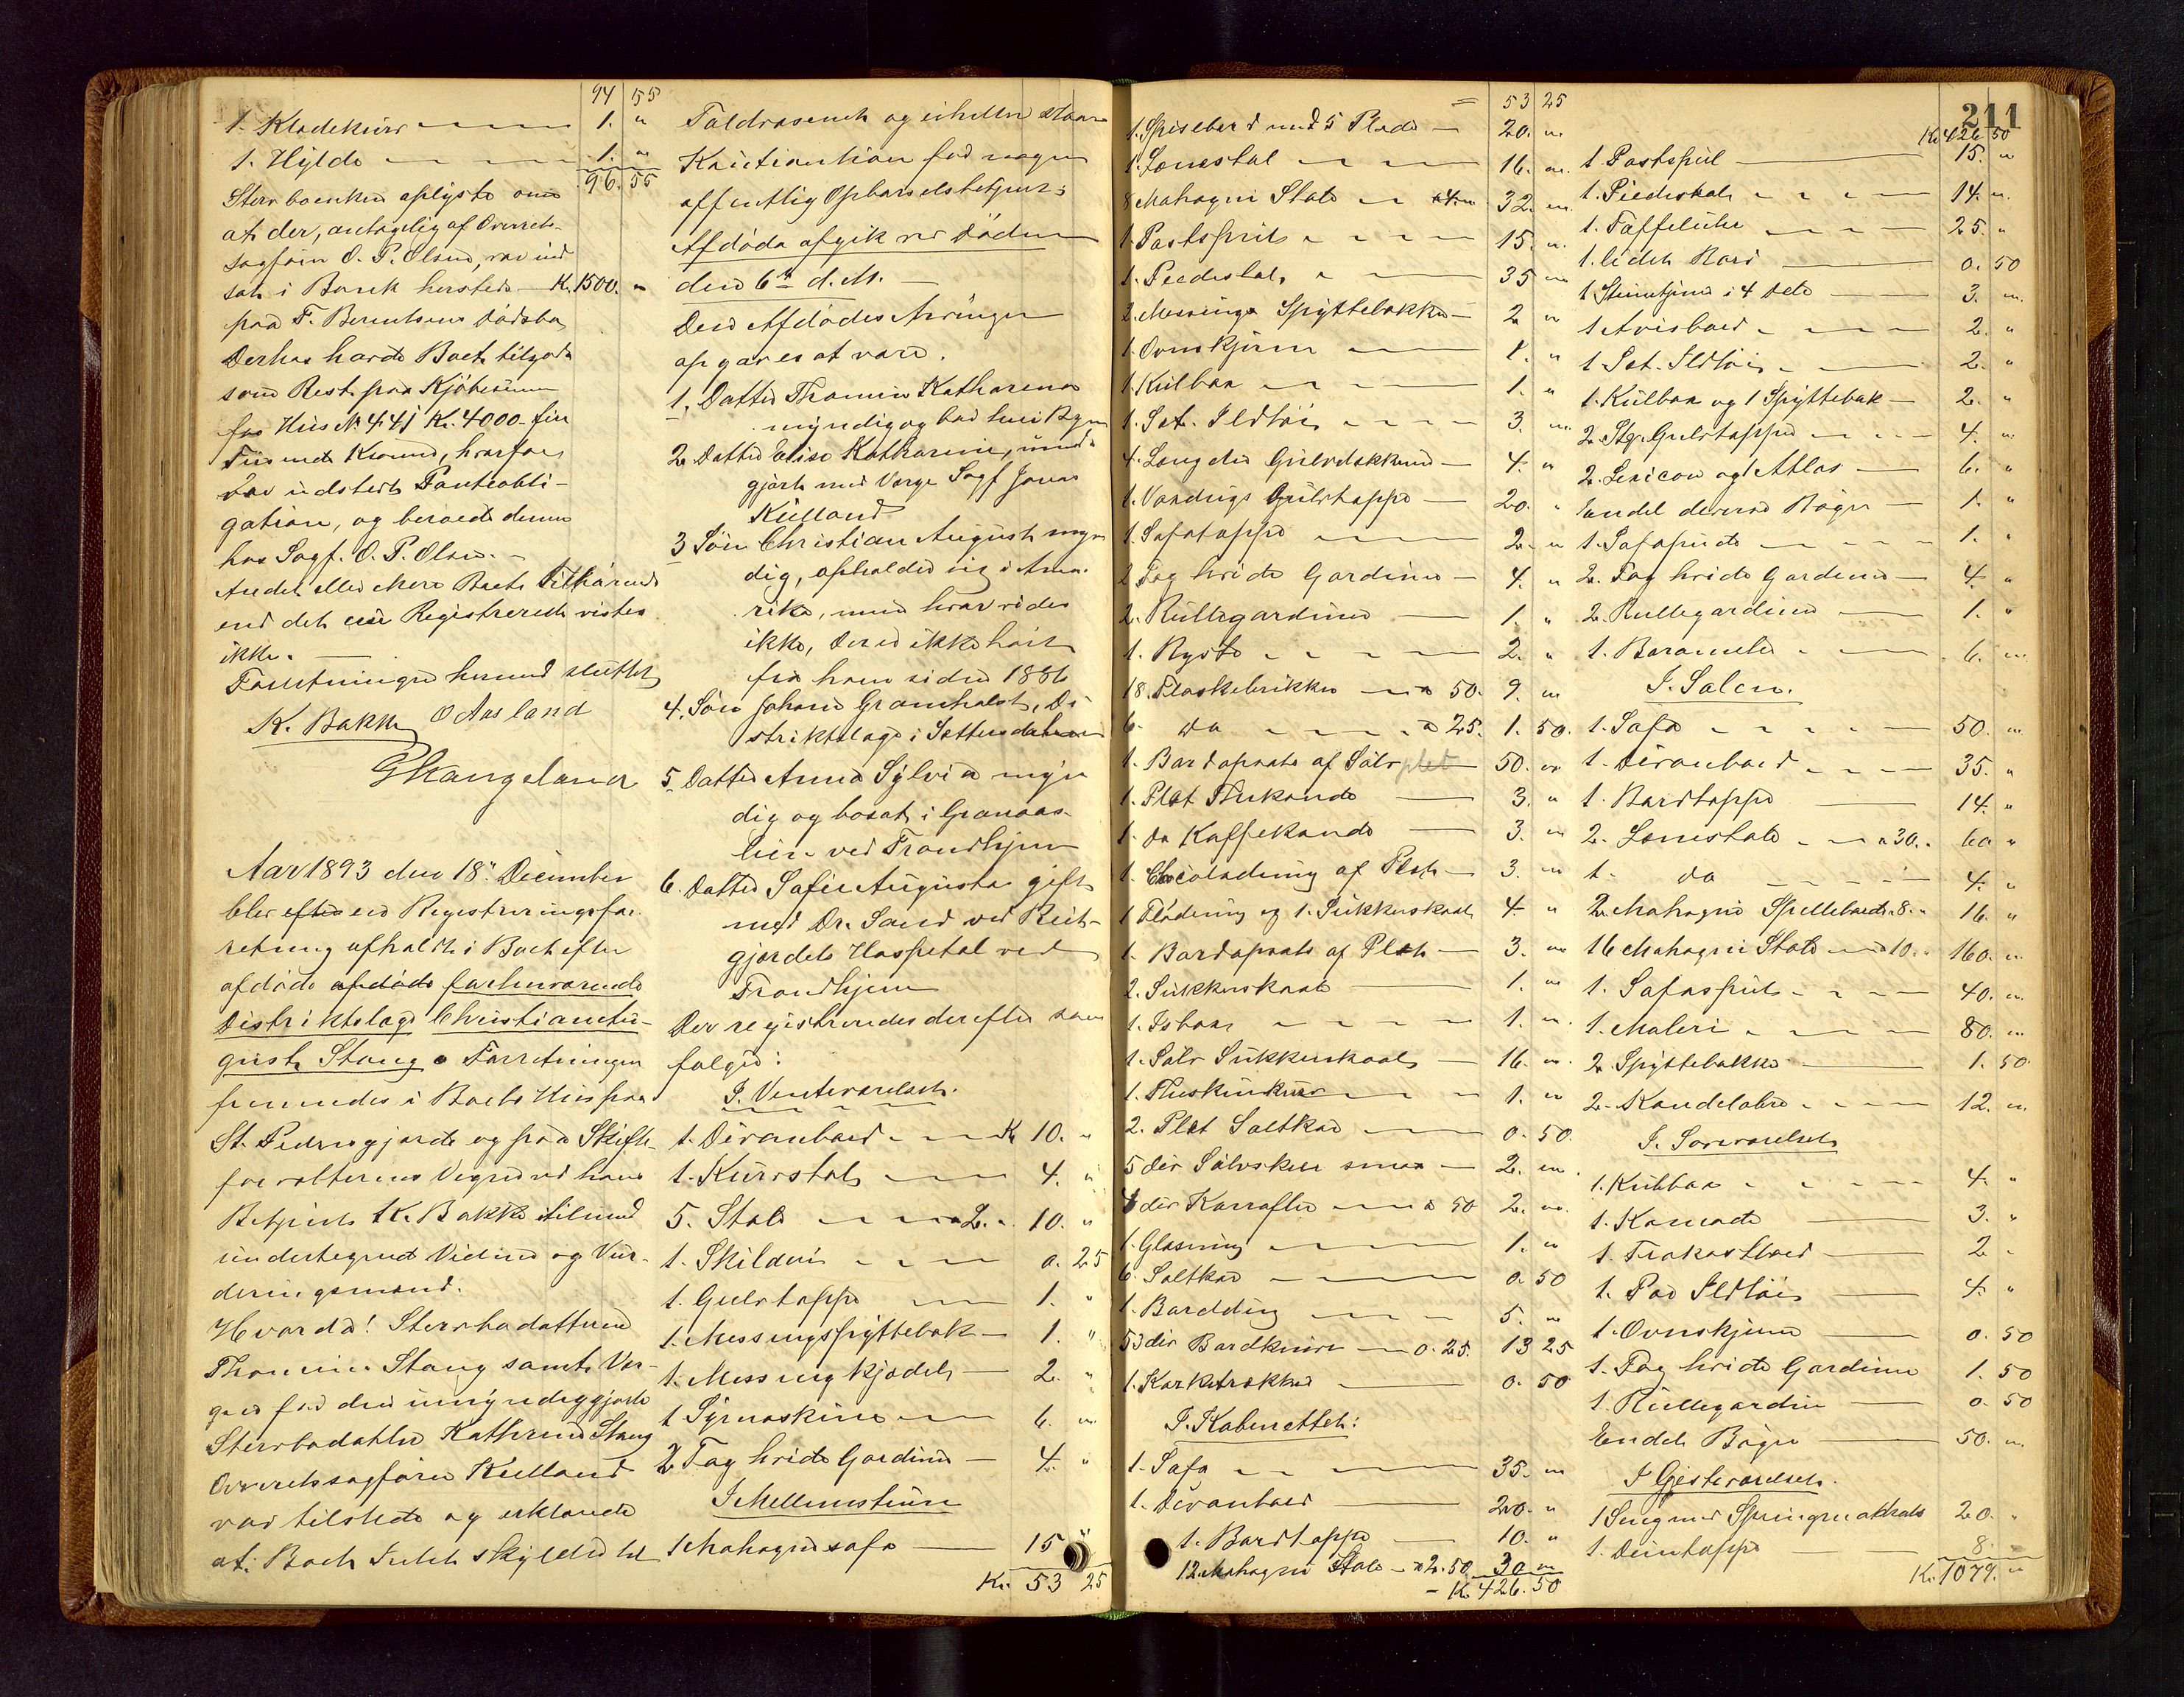 94 55
1. Klædekurv 1. "
1. Hylde 1. "
96. 55
Stervboenken oplyste om
at der, antagelig af Overrets-
sagfører O. P. Olsen, var ind
sat i Bank herstedes K. 1500. "
paa F. Berentsens Dødsbo
Derhos havde Boet tilgode
som Rest paa Kjøbesum
for Hus No 441 Kr. 4000 fire
Tusinde Kroner, hvorfor
var udstedt Panteobli-
gation, og beroede denne
hos Sagf. O. P. Olsen. -
Andet eller Mere Boet Tilhørende
end det nu Registrerede vistes
ikke.
Forretningen hermed sluttet
K. Bakke O Aasland
G Haugeland
Aar 1893 den 18de December
blev efter en Registreringsfor
retning afholdt i Boet efter
afdøde afdøde forhenværende
Distriktslæge Christian Au-
gust Stang. Forretningen
fremmedes i Boets Hus paa
St. Pedersgjerde og paa Skifte-
forvalterens Vegne ved hans
Betjent K. Bakke tilligemed
undertegnede Vidner og Vur-
deringsmænd.
Hvorda! Stervbodatteren
Thomine Stang samt Vær-
gen for den umyndiggjorte
Stervbodatter Kathrine Stang
Overretssagfører Kielland
var tilstede og erklærede
at: Boet Intet skyldte til
Toldvæsenet og ei heller staar
Konstitution fra nogen
offentlig Opbørselsbetjent;
Afdøde afgik ved Døden
den 6te d. M.
Den Afdødes Arvinger
opgaves at være.
1. Datter Thomine Katharena
myndig og bod her i Byen
2. Datter Elise Katharine, umyn
gjort med Verge Sagf Jonas
Kielland
3 Søn Christian August myn
dig, opholder sig i Ame-
rika, men hvor vides
ikke, Der er ikke hørt
fra ham siden 1886
4. Søn Johan Gramholst, Di
striktslæge i Sættersdalen
5. Datter Anna Sylvia myn
dig og bosat i Granaas-
lien ved Trondhjem
6. Datter Sofie Augusta gift
med Dr. Sand ved Reit-
gjerdets Hospital ved
Trondhjem
Der registreredes derefter som
følger:
I. Venteværelset.
1. Divanbord Kr 10. "
1. Kurvstol 4. "
5. Stole a 2. 10. "
1. Skilderi 0. 25
1. Gulvtæppe 1. "
1. Messingspyttebak 1. "
1. Messing kjedel 2. "
1 Symaskine 6. "
2 Fag hvide Gardiner 4. "
I Mellemstuen
1 Mahognisofa 15 "
Kr. 53 25
53 25
1. Spisebord med 5 Plader 20. "
1. Lænestol 16. "
8 Mahogni Stole a 4 " 32. "
1. Postspeil 15. "
1. Peedestal 35 "
2. Messings Spyttebakker 2 "
1. Ovnskjerm 1. "
1. Kulboa 1. "
1. Set. Ildtøi 3. "
4. Længder Gulvdækken 4. "
1. Vandigs Gulvtæppe 20. "
1. Sofatæppe 2. "
2 Fag hvide Gardiner 4. "
2. Rullegardiner 1. "
1. Kyste 2. "
18. Flaskebrikker a 50. 9. "
6 do a 25. 1. 50.
1. Bordopsats af Sølvplet 50. "
1. Plet Thekande 3. "
1. do Kaffekande 3. "
1. Chocoladeing af Plet 3. "
1 Flødeing og 1. Sukkerskaal 4. "
1. Bordopsats af Plet 3. "
2. Sukkerskaale 1. "
1. Isboxe 1. "
1. Sølv Sukkerskaal 16. "
1. Theskinkurv 1. "
2. Plet Saltkar 0. 50.
5 div Sølvskeer smaa 2. "
4 div Karafler a 50 2. "
1. Glasning 1. "
6. Saltkar 0. 50
1. Bordding 5. "
53 div Bordknive 0. 25. 13 25
1. Korketrækker 0. 50
I. Kabinettet:
1. Sofa 35. "
1. Divanbord 20. "
1. Bordtæppe 10. "
12 Mahogni Stole a 2. 50 30 "
K. 426. 50
211
Kr. 426 50
1. Postspeil 15. "
1. Piedestal 14. "
1. Taffeluhr 25. "
1. lidet Bord 0. 50
1 Stentjener i 4 Dele 3. "
1 Avisbord 2. "
1 Set. Ildtøi 2. "
1. Kulboa og 1 Spyttebak 2. "
2. Stgr. Gulvtæpper 4. "
2. Lexicon og 1 Atlas 6. "
Endel diverse Bøger 1. "
1. Sofapude 1. "
2. Fag hvide Gardiner 4. "
2. Rullegardiner 1. "
1. Barometer 6. "
I. Salen.
1. Sofa 50. "
1. Divanbord 35. "
1. Bordtæppe 14. "
2. Lænestole a 30. 60 "
1. do 4. "
2. Mahogni Spilleborde a 8. 16 "
16 Mahogni Stole a 10. 160. "
1. Sofaspeil 40. "
1. Maleri 80. "
2. Spyttebakke 1. 50
2. Kandelabre 12. "
I. Soveværelset
1. Kulboa 4. "
1. Komode 3. "
1. Frokostbord 2. "
1. Par Ildtøi 4. "
1. Ovnskjerm 0. 50
1. Fag hvide Gardiner 1. 50
1. Rullegardin 0. 50
Endel Bøger 50. "
I Gjesteværelset.
1 Seng med Springmadrats 20. "
1. Duntæppe 8. "
Kr. 1079. "